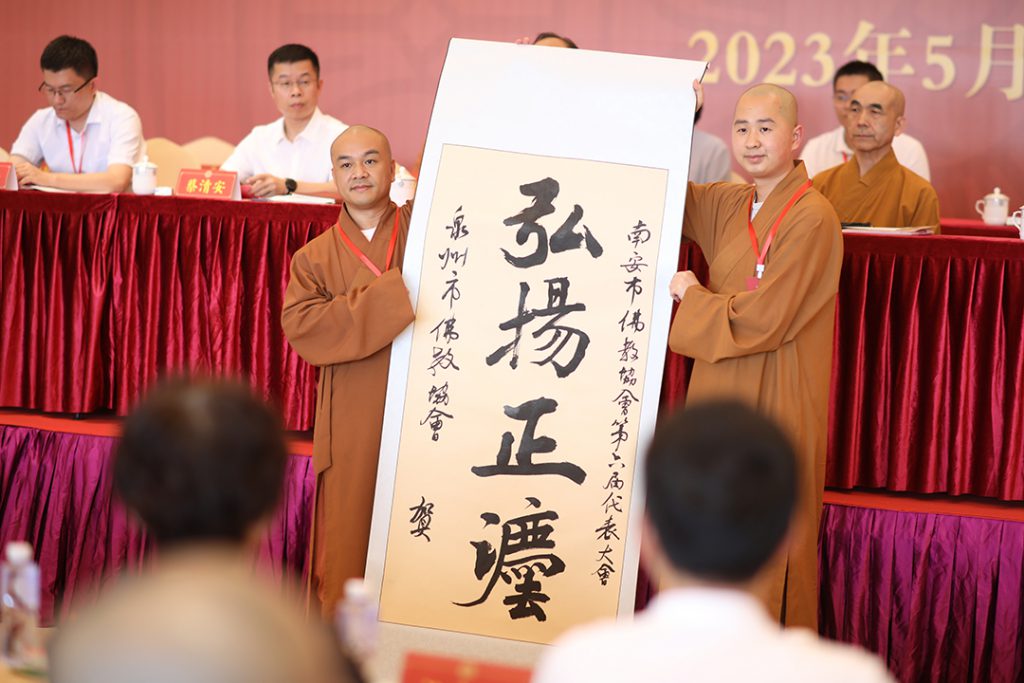 2023年5月
蔡清安
南安市佛教協會第六届代表大會
弘揚正灋
泉州市佛教協會
贺